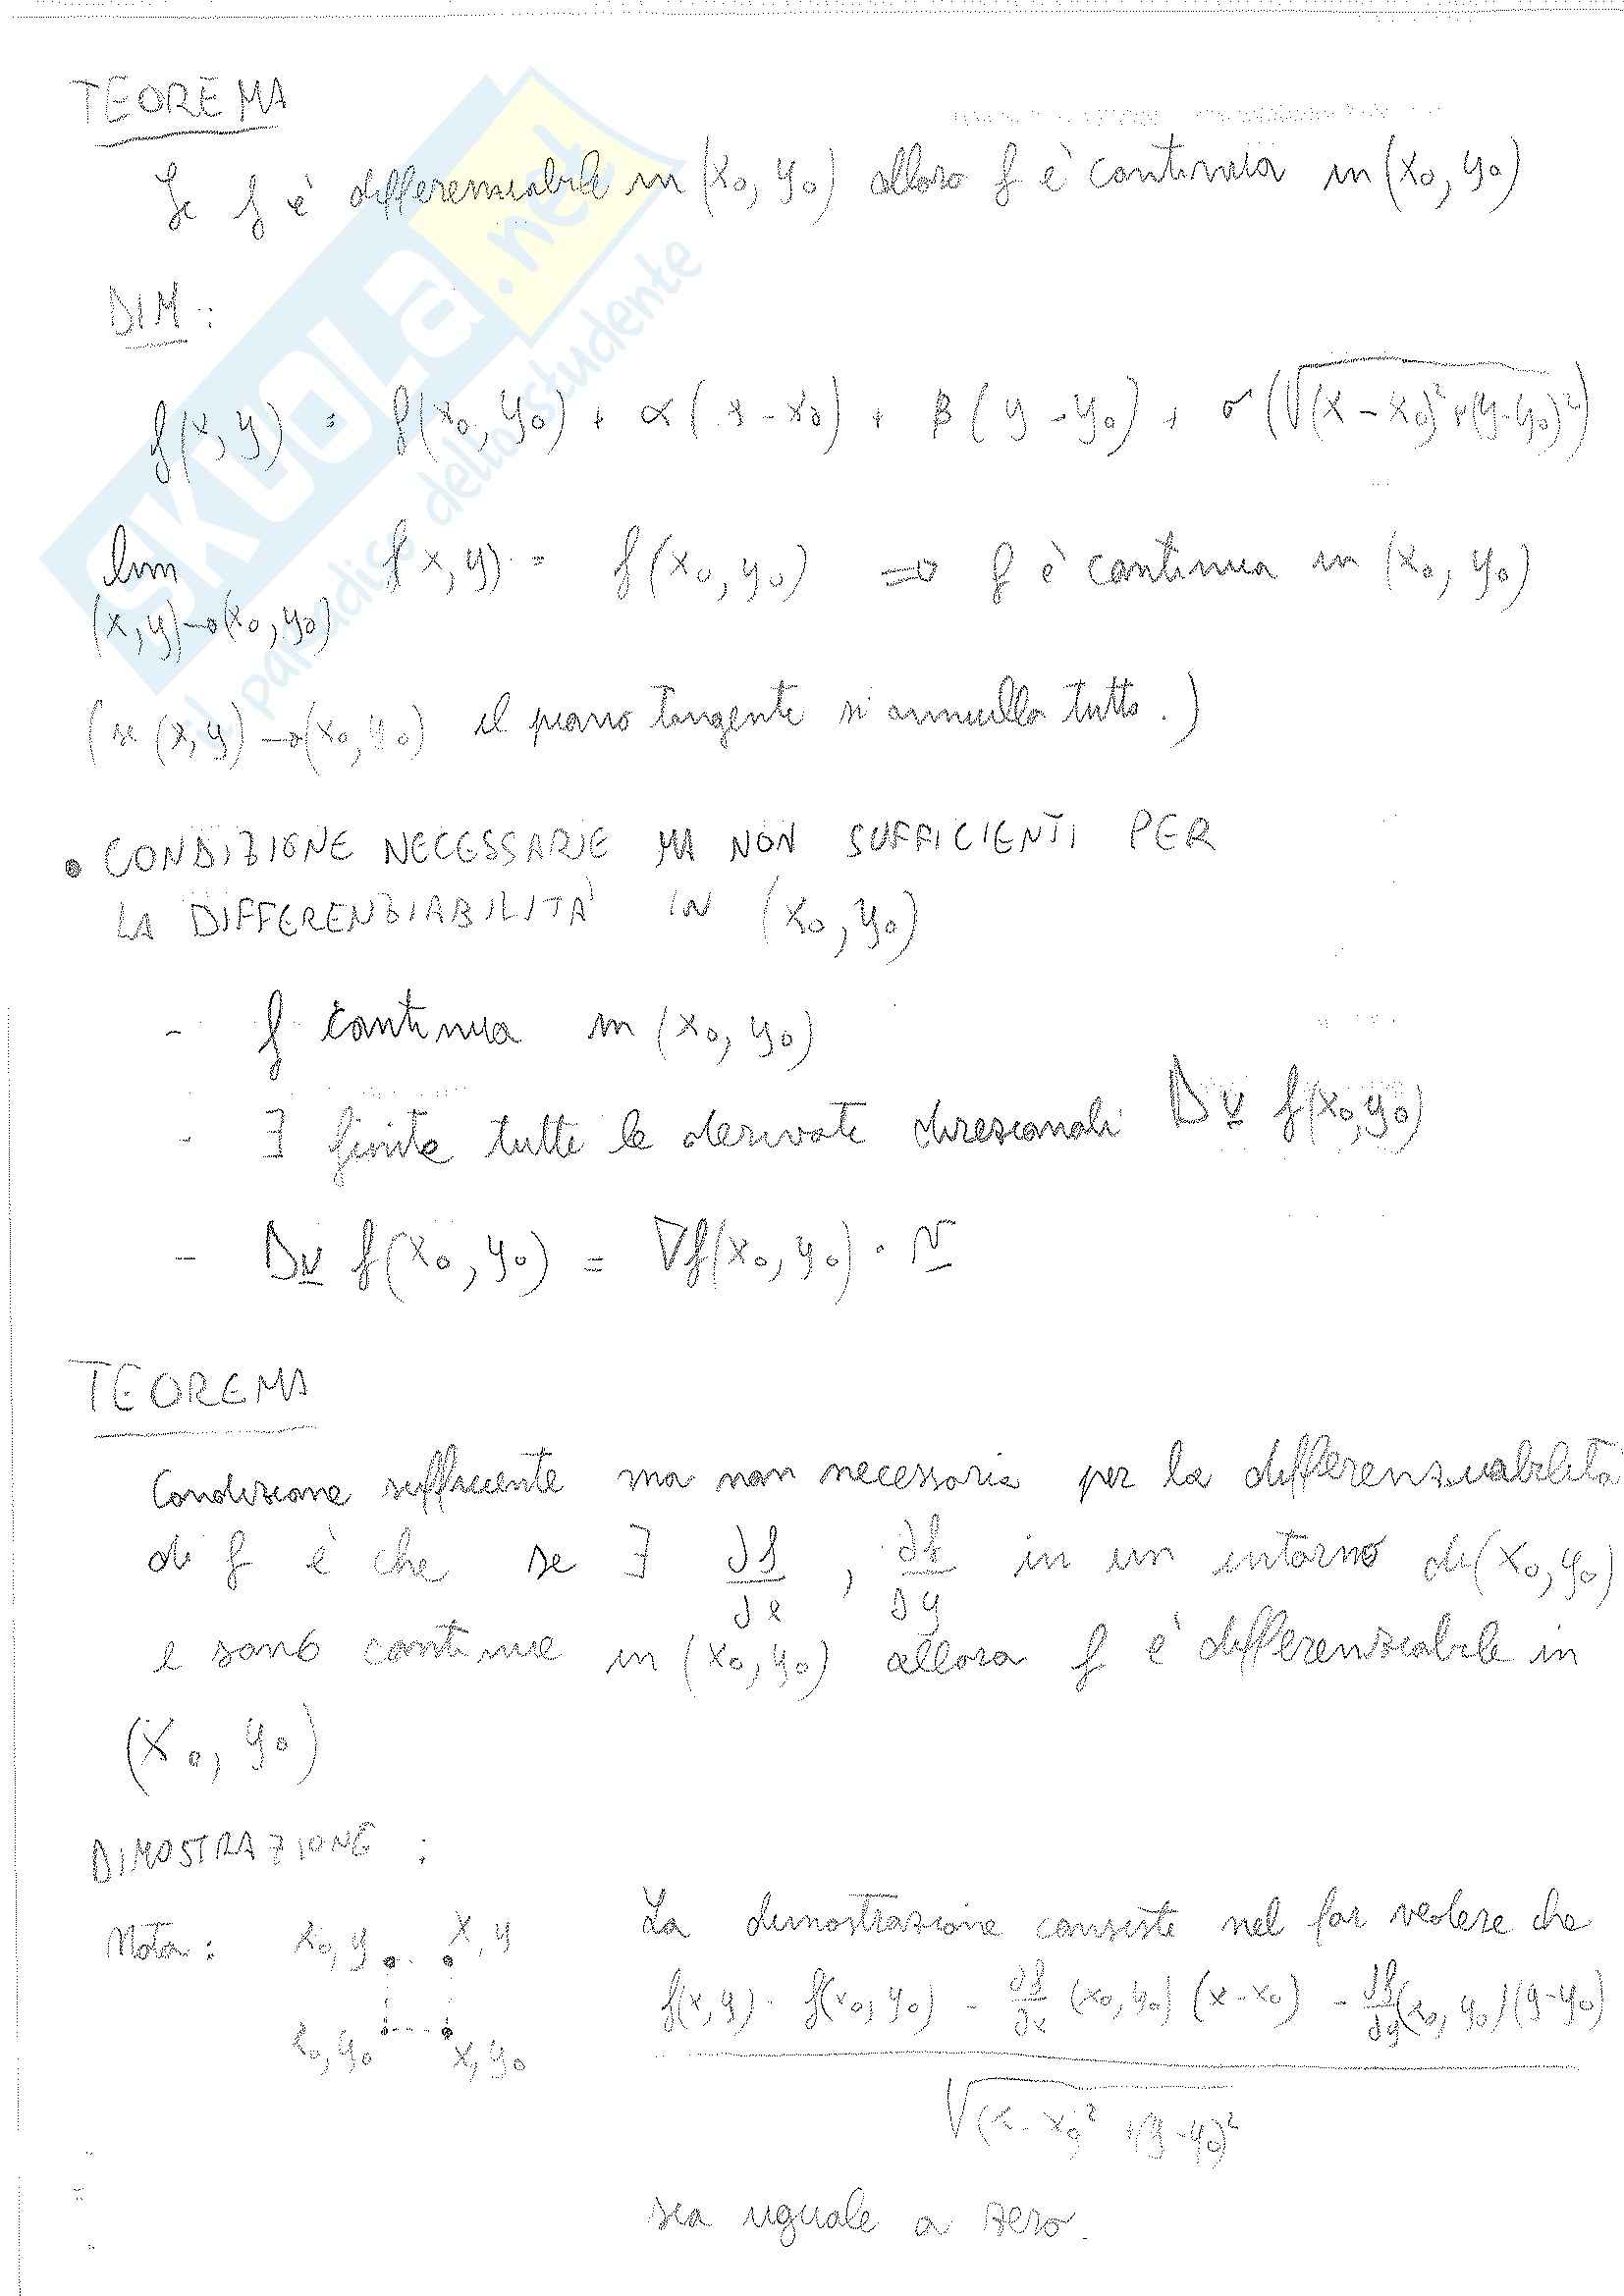 TEOREMA
Se f è differenziabile in (x₀, y₀) allora f è continua in (x₀, y₀)
DIM:
f(x, y) = f(x₀, y₀) + α(x - x₀) + β(y - y₀) + σ(√(x - x₀)² + (y - y₀)²)
lim f x, y) = f(x₀, y₀) => f è continua in (x₀, y₀)
(x, y)→(x₀, y₀)
(se (x, y)→(x₀, y₀) il piano tangente si annulla tutto.)
• CONDIZIONE NECESSARIE MA NON SUFFICIENTI PER
LA DIFFERENZIABILITÀ IN (x₀, y₀)
- f continua in (x₀, y₀)
- ∃ finite tutte le derivate direzionali Dv f(x₀, y₀)
- Dv f(x₀, y₀) = ∇f(x₀, y₀) · v
TEOREMA
Condizione sufficiente ma non necessaria per la differenziabilità
di f è che se ∃ ∂f/∂x , ∂f/∂y in un intorno di (x₀, y₀)
e sono continue in (x₀, y₀) allora f è differenziabile in
(x₀, y₀)
DIMOSTRAZIONE:
Nota: x₀, y x, y
x₀, y₀ x, y₀
La dimostrazione consiste nel far vedere che
f(x, y) - f(x₀, y₀) - ∂f/∂x (x₀, y₀) (x - x₀) - ∂f/∂y (x₀, y₀) (y - y₀)
√(x - x₀)² + (y - y₀)²
sia uguale a zero.
SKUOLA.net
il paradiso dello studente